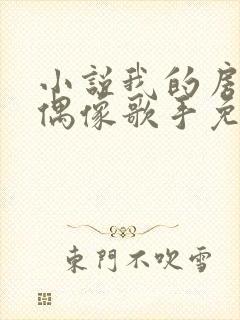 小说我的房
偶像歌手免
東門不吹雪